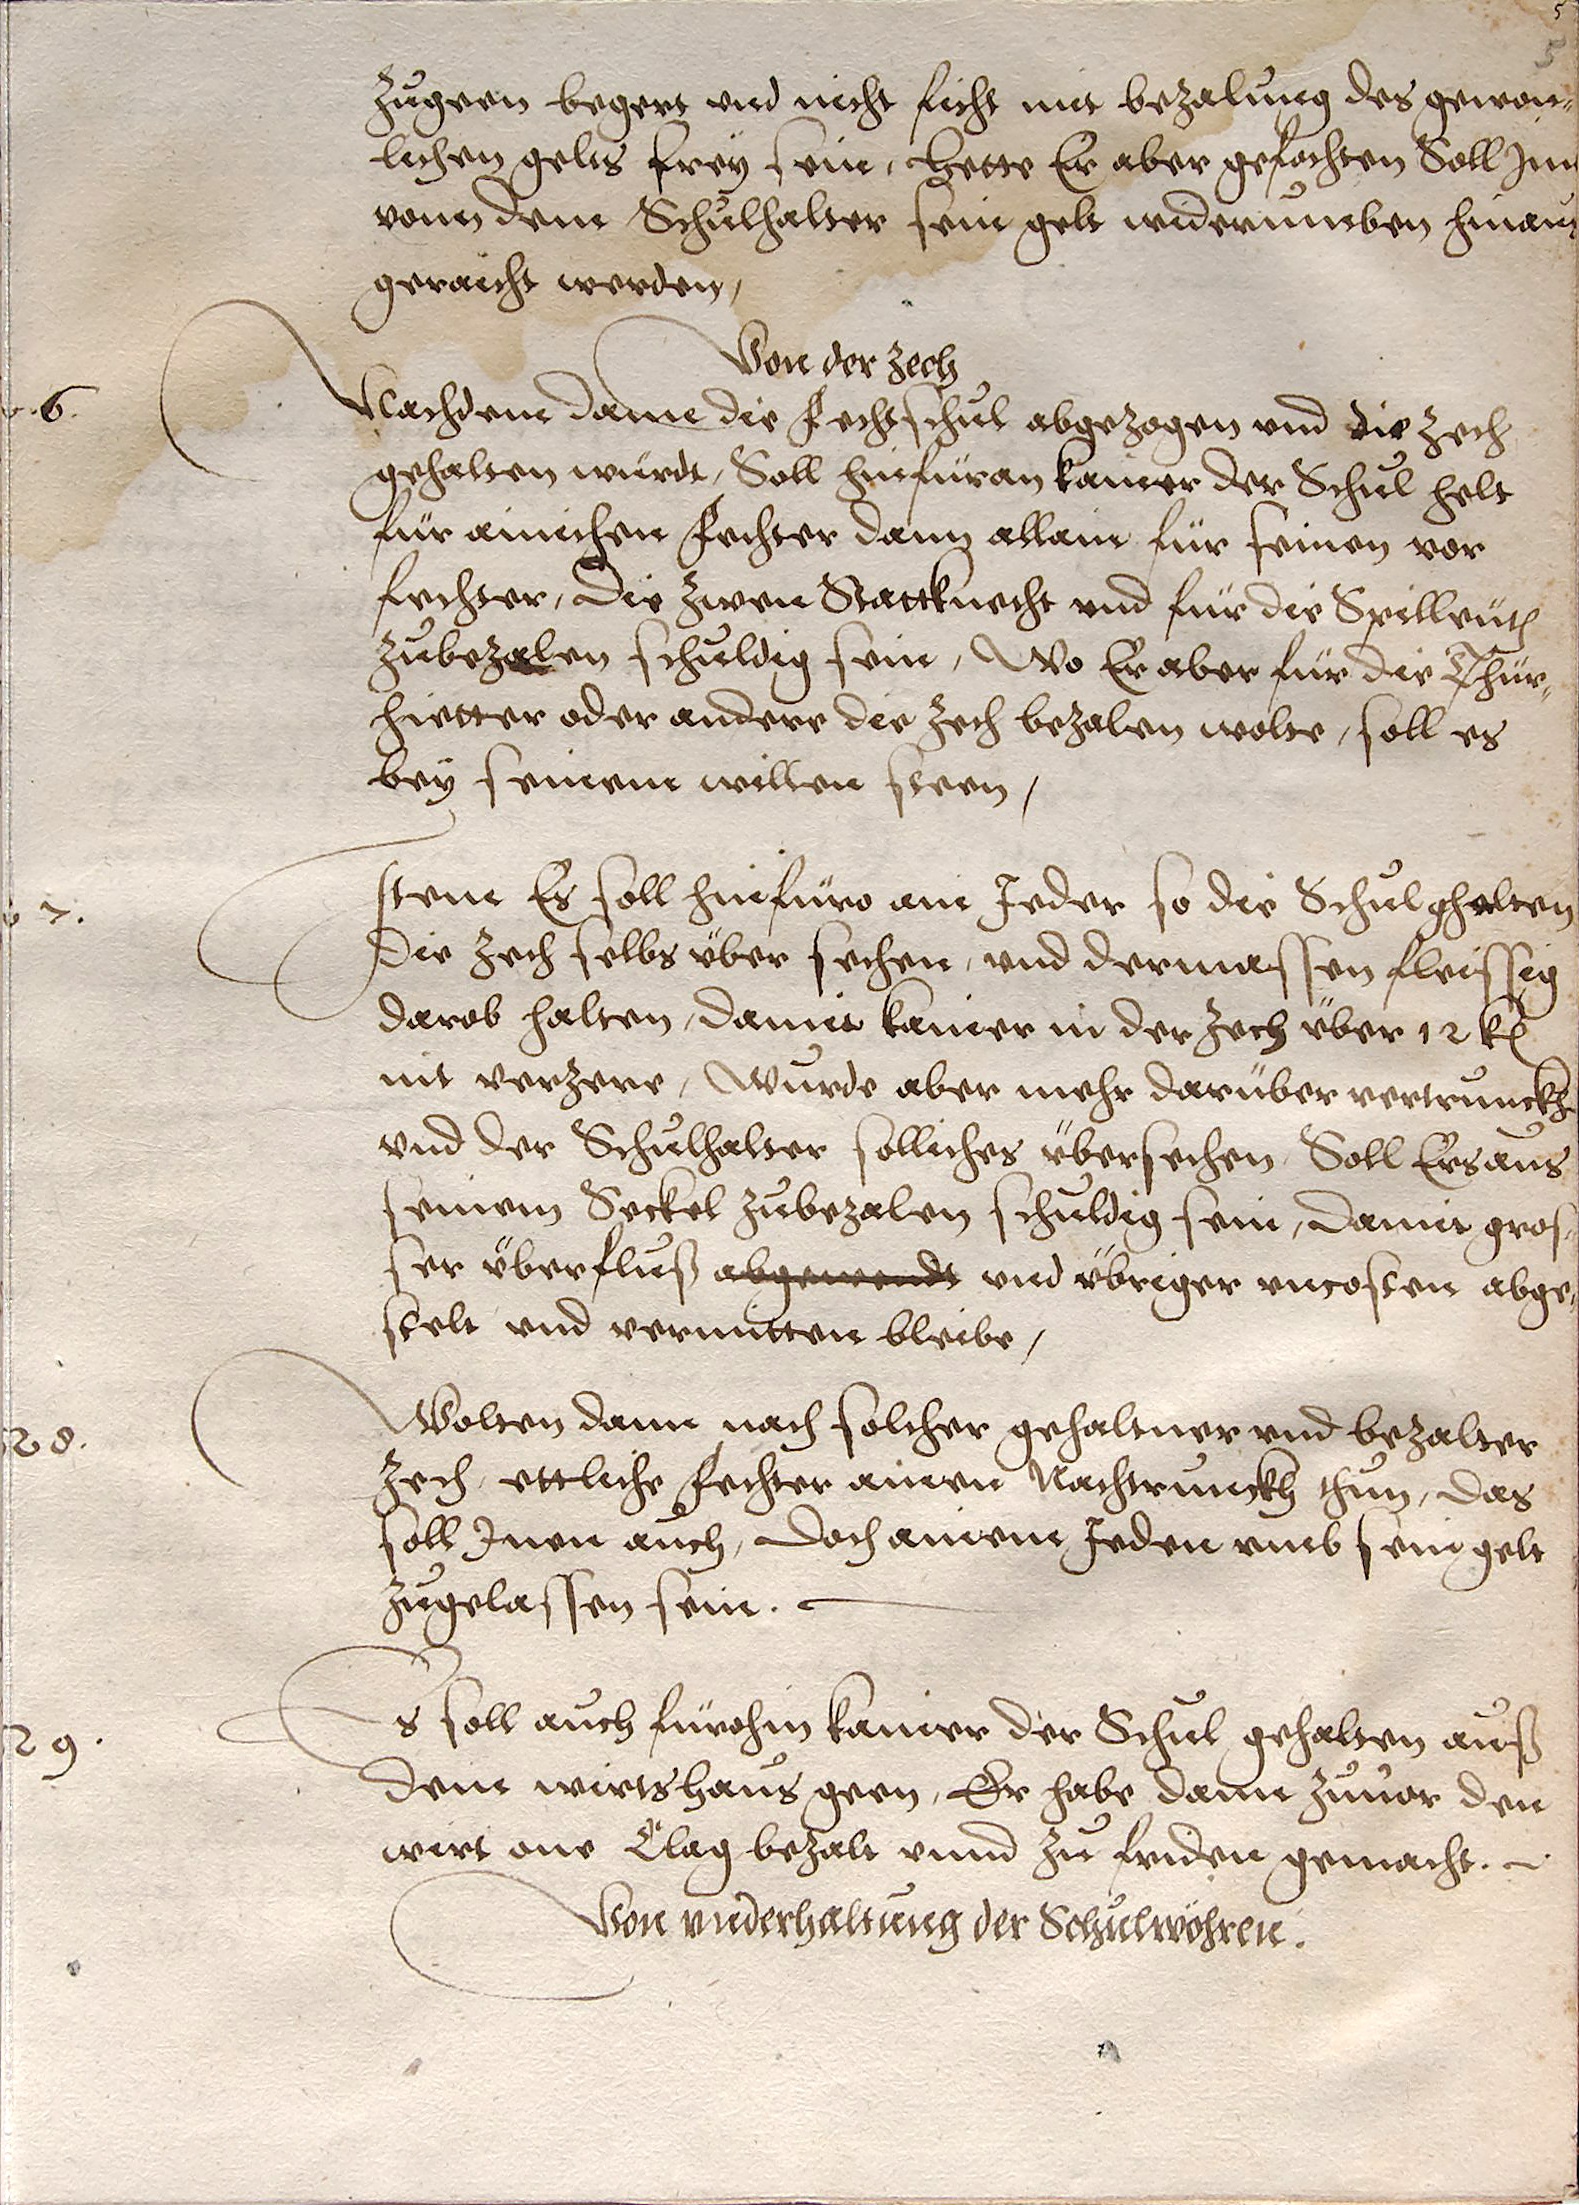 5
5
zugeen begert vnd nicht ficht mit bezalung des gewon-
lichen gelts frey sein, Hette Er aber gefochten Soll Im
vonn dem Schulhalter sein gelt widerumben hinaus
geraicht werden,
Von der Zech
6.
Nachdem dann die Fechtschul abgezogen vnd die Zech
gehalten würdt, Soll hinfüran kainer der Schul helt
für ainichen Fechter dann allain für seinen vor
fechter, die zwen Stattknecht vnd für die Spilleut
zubezalen schuldig sein, Wo Er aber für die Thür-
hietter oder andere die Zech bezalen wolte, soll es
bey seinem willen steen,
7.
Item Es soll hinfüro ain Jeder so die Schul ghalten
die Zech selbs über sechen, vnd dermassen fleissig
darob halten, damit kainer in der Zech über 12 kr
nit verzere, Wurde aber mehr darüber vertrunckhen
vnd der Schulhalter solliches übersechen, Soll Ers aus
seinem Seckel zubezalen schuldig sein, damit gros-
ser überfluß abgewendt vnd übriger vncosten abge-
stelt vnd vermitten bleibe,
28.
Wolten dann nach solcher gehaltner vnd bezalter
Zech, ettliche Fechter ainen Nachtrunckh thun, das
soll Inen auch, doch ainem Jeden vmb sein gelt
zugelassen sein.
29.
Es soll auch fürohin kainer der Schul gehalten auß
dem wirtshaus geen, Er habe dann zuuor den
wirt one Clag bezalt vnnd zu friden gemacht.
Von vnderhaltung der Schulwöhren.